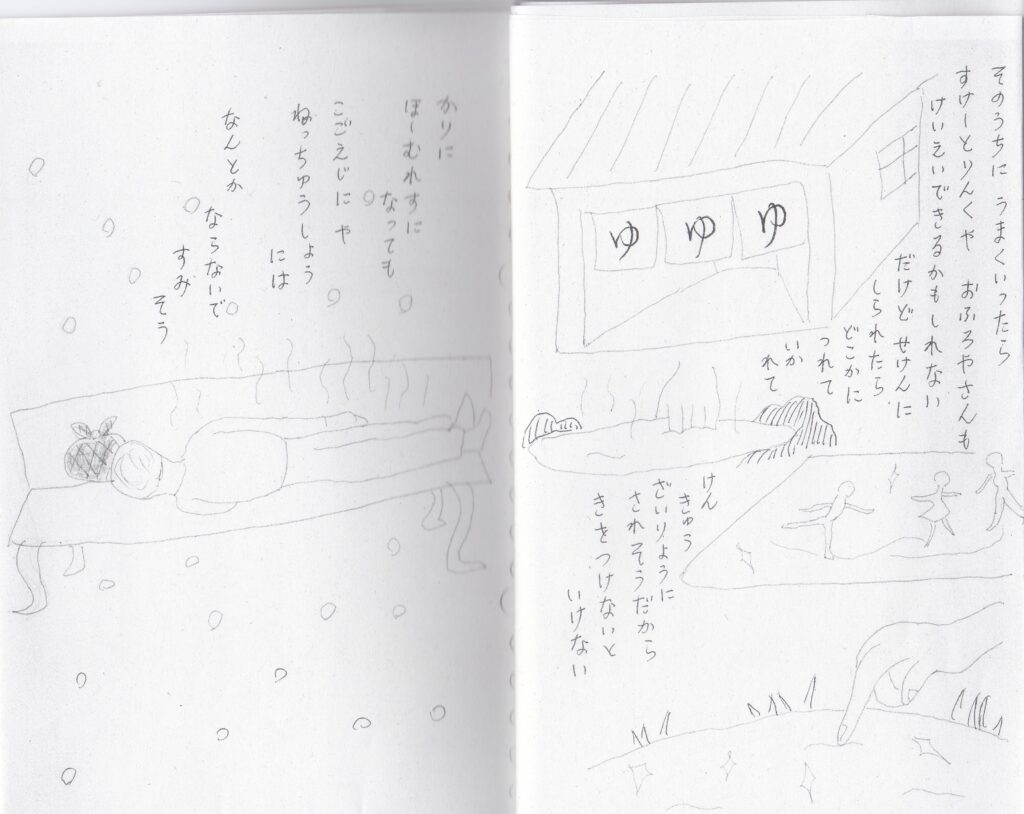 そのうちに うまくいったら
すけーとりんくや おふろやさんも
けいえいできるかもしれない
だけどせけんに
しられたら
どこかに
つれて
いか
れて
ゆ ゆ ゆ
けん
きゅう
ざいりょうに
されそうだから
きをつけないと
いけない
かりに
ほーむれすに
なっても
こごえじにや
ねっちゅうしょう
には
なんとか
ならないで
すみ
そう